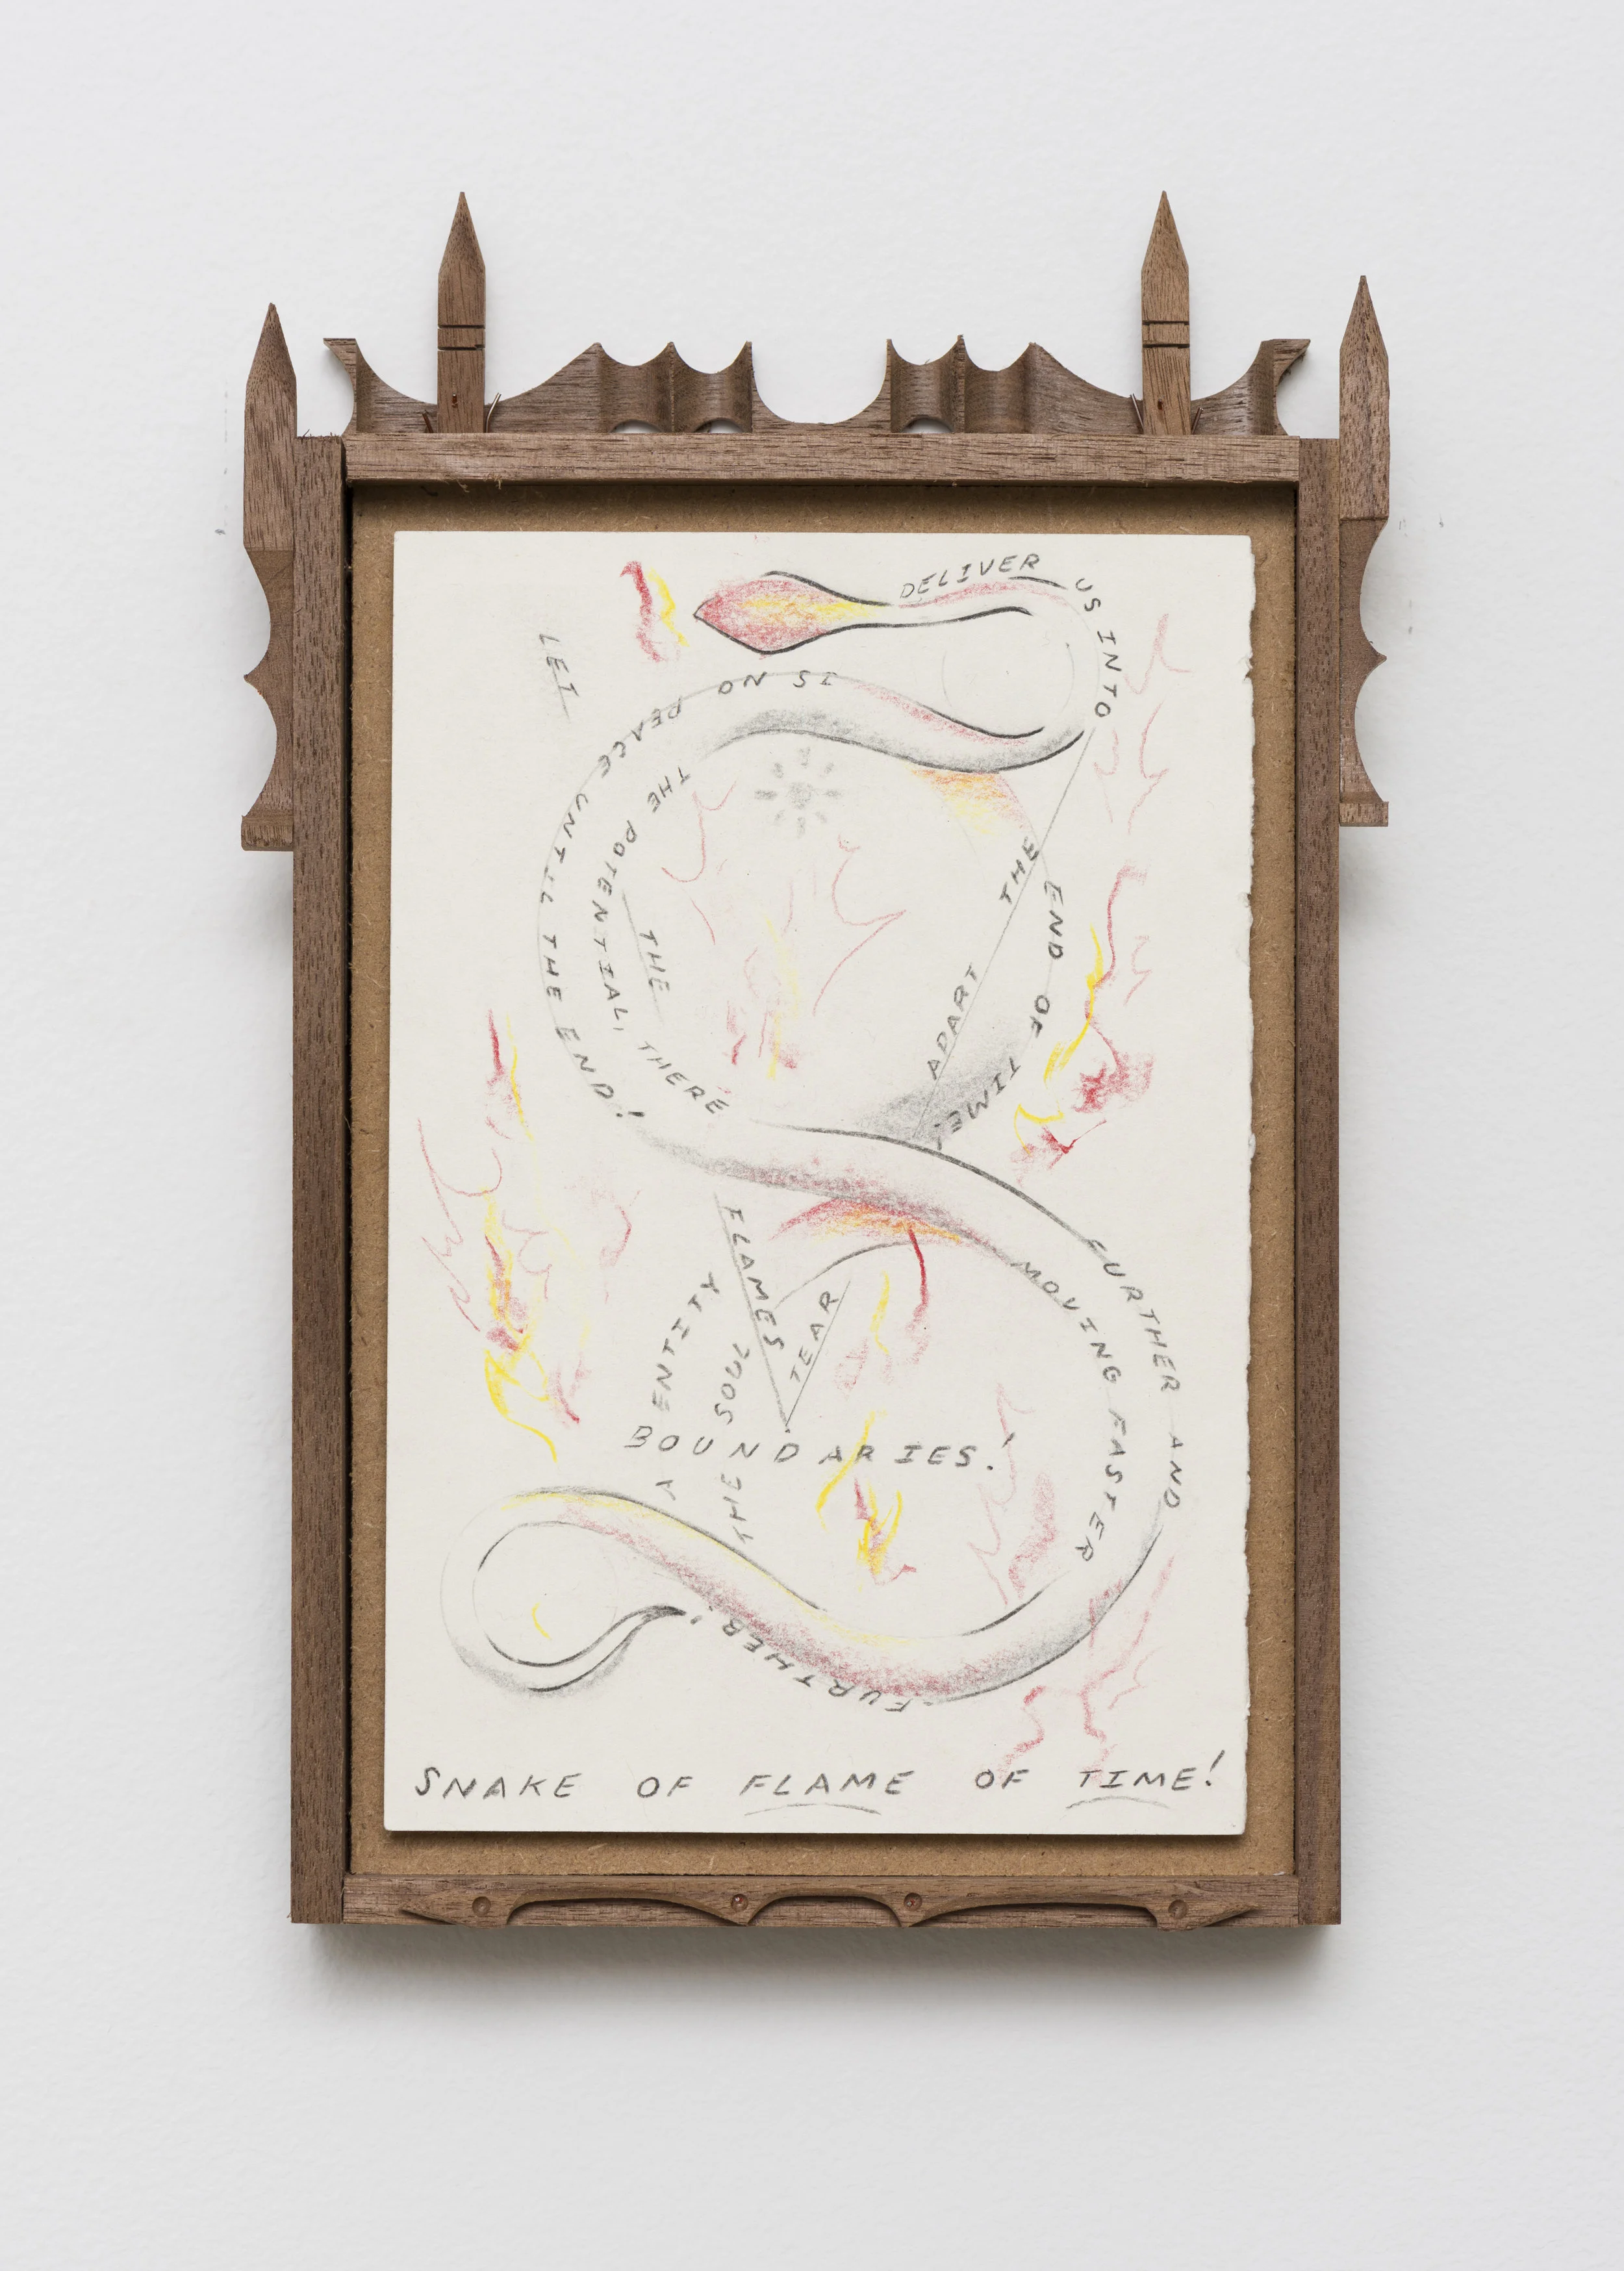 DELIVER US INTO
THE END OF TIME,
THE POTENTIAL, THERE
IS NO PEACE UNTIL THE END!
LET
THE
FLAMES
TEAR
APART
THE
BOUNDARIES!
ENTITY
THE SOUL
MOVING FASTER
FURTHER AND
FURTHER!
SNAKE OF FLAME OF TIME!